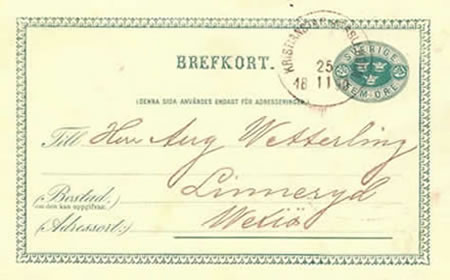 BREFKORT.
SVERIGE
FEM ÖRE
25
18 11
(DENNA SIDA ANVÄNDES ENDAST FÖR ADRESSERINGEN.)
Till Herr Aug Wetterling
(Bostad, Linneryd
om den kan uppgifvas.
(Adressort:) Wexiö